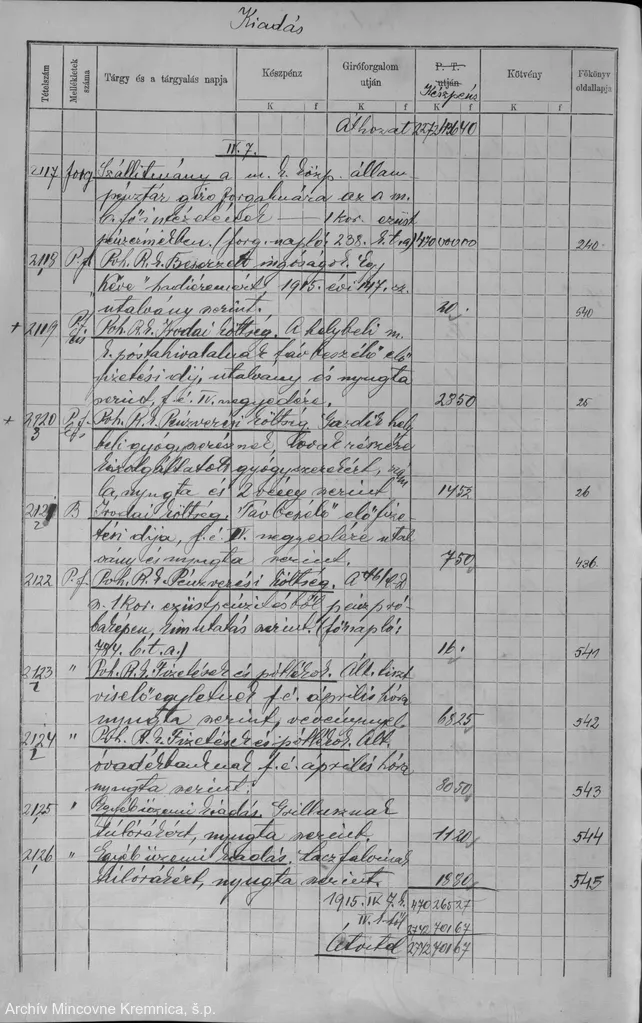 Kiadás
Tételszám
Mellékletek száma
Tárgy és a tárgyalás napja
Készpénz
Giróforgalom útján
P. T. útján
Készpénz
Kötvény
Főkönyv oldallapja
K f K f K f K f
Áthozat 2272 40
IV. 7.
2117 forg. Szállítmány a m. k. közp. állam-
pénztár giro forgalmára az a m.
t. főintézetek — 1 kor. ezüst
pénzérmékben. (forg. napló: 238. k. t. a) 470 000 00 240
2118 P. f. Poh. R. k. Beszerzett "Egy
héve" hadiéremért 1915. évi 147. sz.
utalvány szerint. 20 540
2119 Poh. R. k. Irodai költség. A helybeli m.
k. postahivatalnak távbeszélő elő-
fizetési díj, utalvány és nyugta
szerint, f. é. IV. negyedére. 23 50 25
2120 P. f. Poh. R. k. Pénzverési költség. hely-
beli gyógyszerésznek lovak részére
kiszolgáltatott gyógyszerekért, szám-
la, nyugta és 2 vény szerint 14 52 26
2121 B Irodai költség. Távbeszélő előfize-
tési díja, f. é. IV. negyedére utal-
vány és nyugta szerint. 7 50 436
2122 P. f. Poh. R. k. Pénzverési költség. A
1 kor. ezüstpénzekből pénzpró-
baképen, kimutatás szerint. (főnapló:
784. t. a.) 16 541
2123 " Poh. R. k. Fizetések és pótlékok. Ált. tiszt-
viselő egyletnek f. é. április hóra
nyugta szerint, 68 25 542
2124 " Poh. R. k. Fizetések és pótlékok. Ált.
f. é. április hóra
nyugta szerint. 80 50 543
2125 " Egyéb üzemi kiadás. Grillusznak
túlórákért, nyugta szerint. 11 20 544
2126 " Egyéb üzemi kiadás. Laczfalvinak
túlórákért, nyugta szerint. 18 80 545
1915. IV. 7. 470 265 27
IV. 1-től 2742 701 67
Átvitel 2742 701 67
Archív Mincovne Kremnica, š.p.